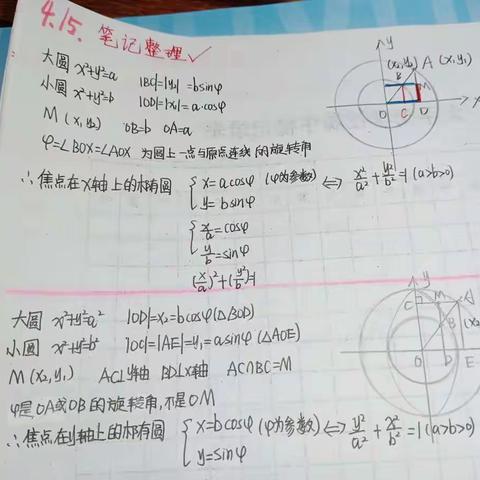 4.15. 笔记整理✓
大圆 x²+y²=a |BC|=|y₂|=bsinφ
小圆 x²+y²=b |OD|=|x₁|=a·cosφ
M(x₁,y₂) OB=b OA=a
φ=∠BOX=∠AOX 为圆上一点与原点连线的旋转角
∴焦点在x轴上的椭圆 { x=acosφ (φ为参数) ⇔ x²/a²+y²/b²=1 (a>b>0)
y=bsinφ
{ x/a=cosφ
y/b=sinφ
(x/a)²+(y/b)²=1
y
(x₂,y₂) A (x,y₁)
B M
O C D x
大圆 x²+y²=a² |OD|=x₂=bcosφ(△BOD)
小圆 x²+y²=b² |OC|=|AE|=y₁=asinφ(△AOE)
M(x₂,y₁) AC⊥y轴 BD⊥x轴 AC∩BC=M
φ是OA或OB的旋转角,不是OM
∴焦点在y轴上的椭圆 { x=bcosφ (φ为参数) ⇔ y²/a²+x²/b²=1 (a>b>0)
y=sinφ
y
C M A
B (x₂
O D E